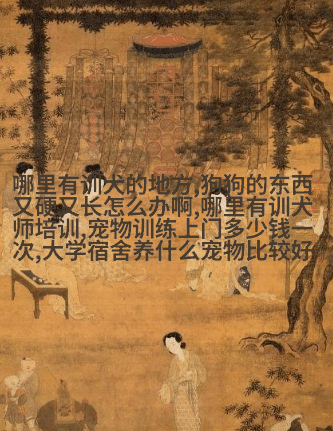 哪里有训犬的地方,狗狗的东西
又硬又长怎么办啊,哪里有训犬
师培训,宠物训练上门多少钱一
次,大学宿舍养什么宠物比较好